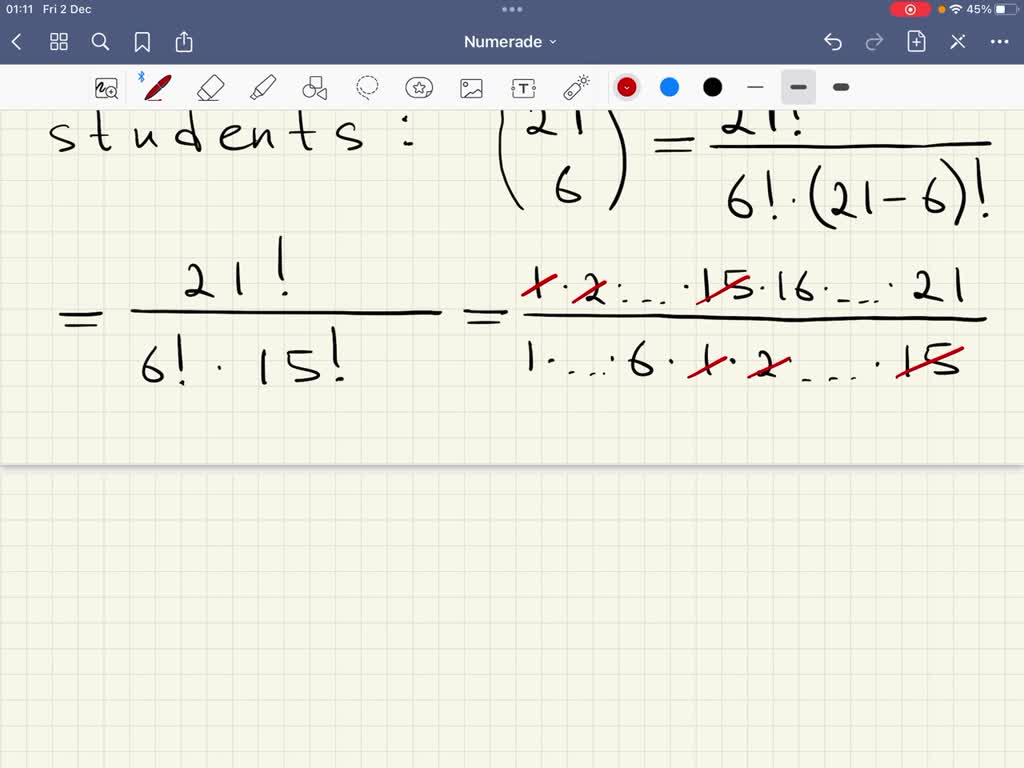 01:11 Fri 2 Dec 45%
Numerade
T
students : (21 6) = 21! / 6! · (21 - 6)!
= 21! / 6! · 15! = 1 · 2 · ... · 15 · 16 · ... · 21 / 1 · ... · 6 · 1 · 2 · ... · 15